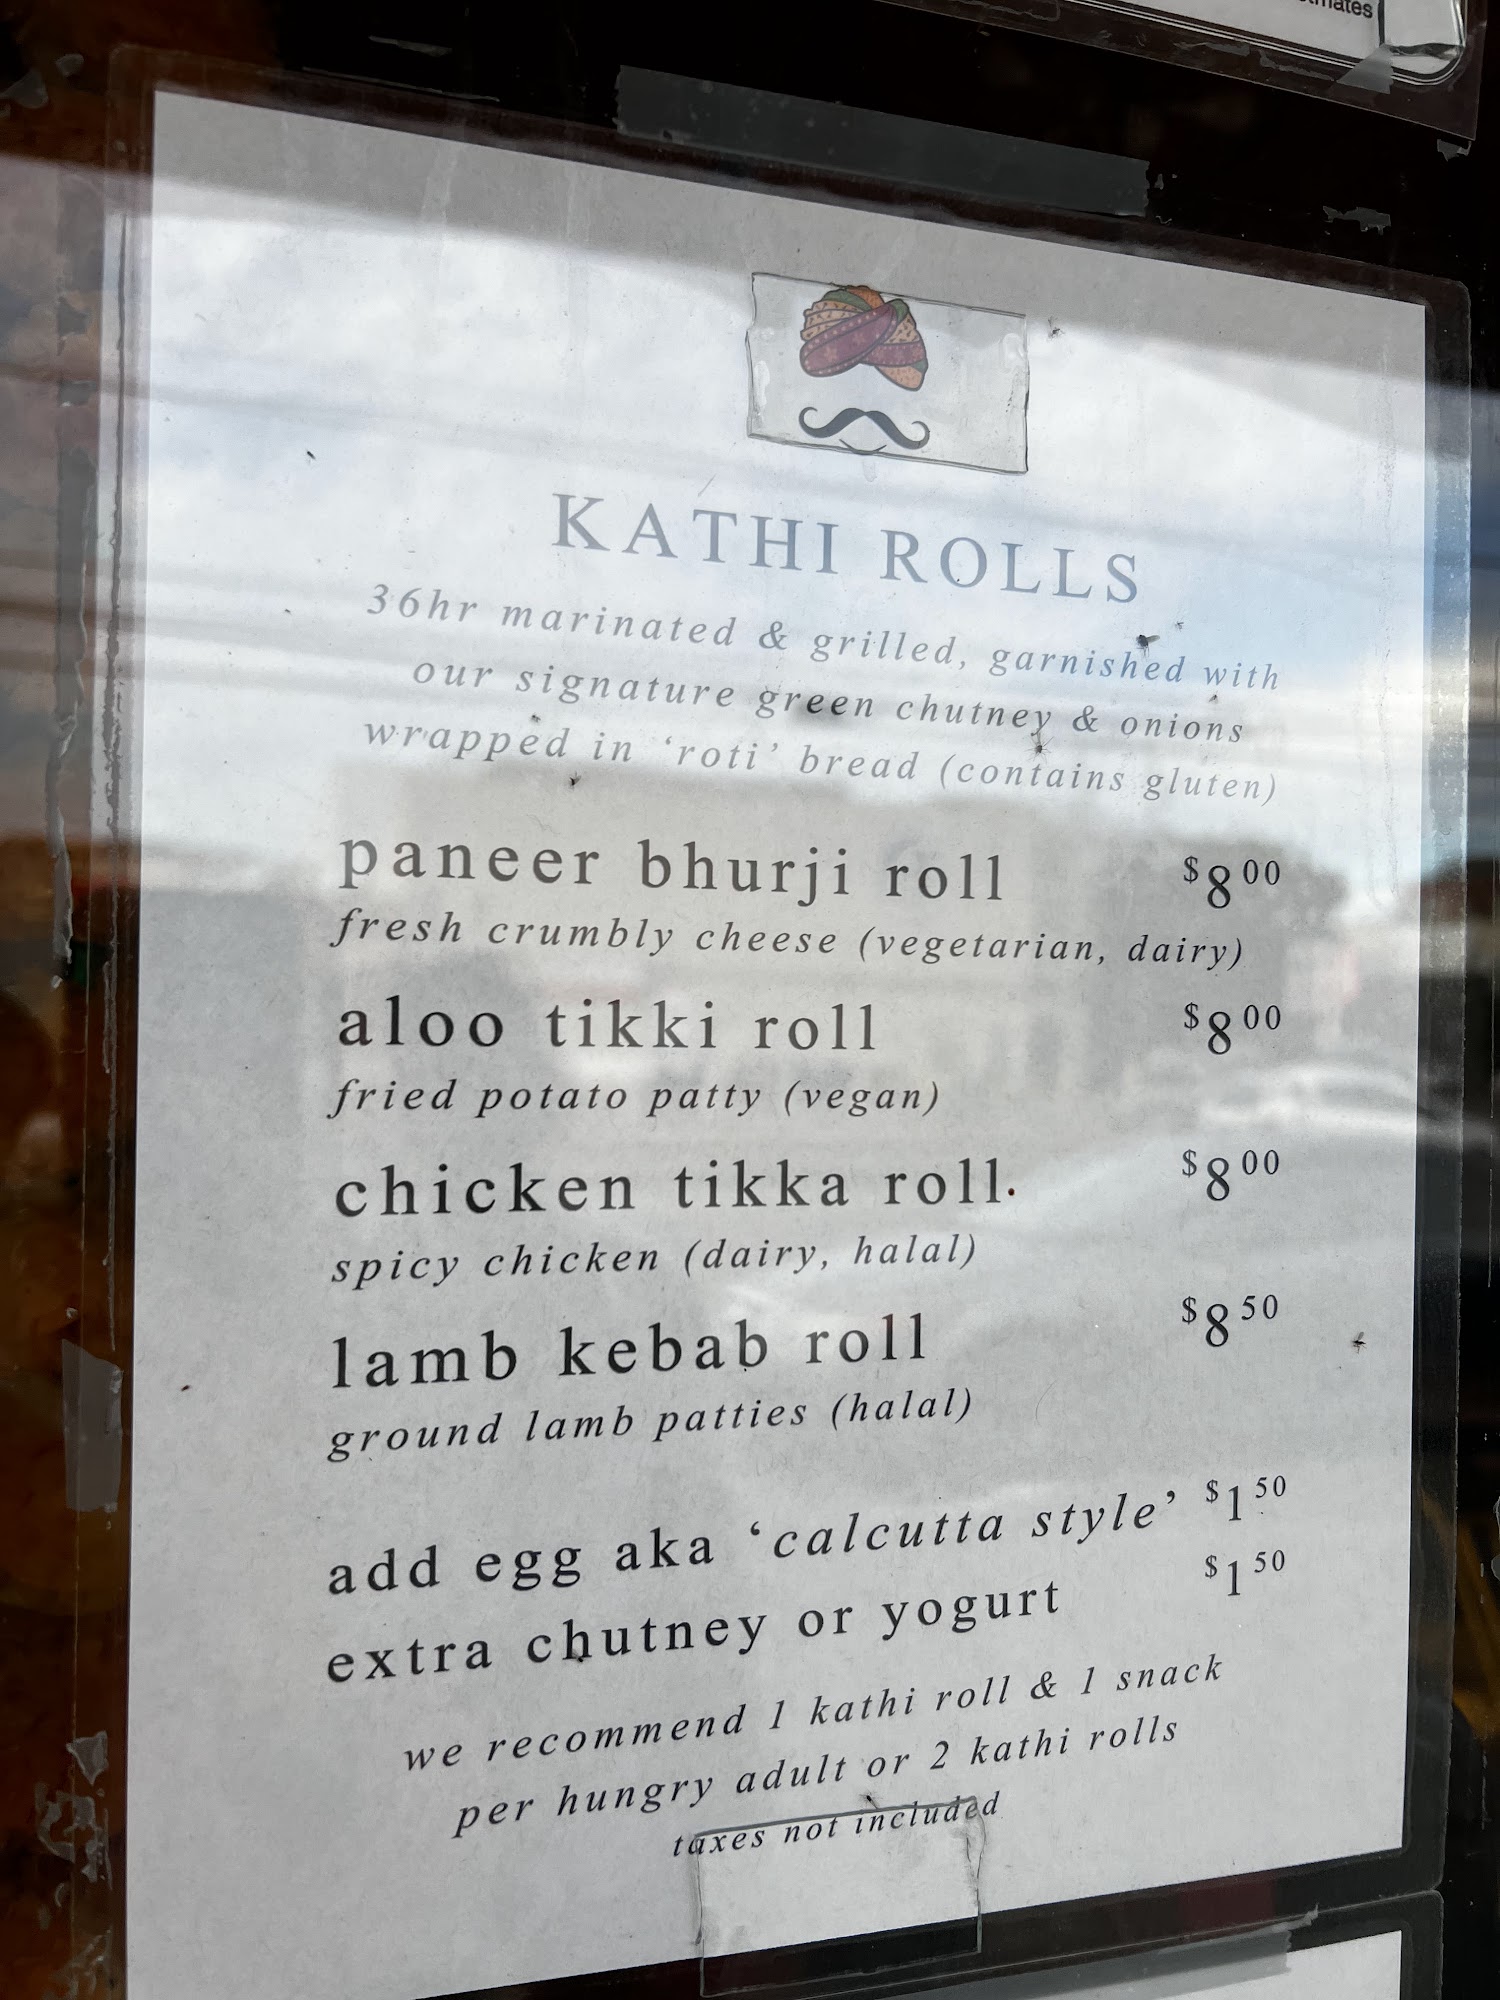 KATHI ROLLS
36hr marinated & grilled, garnished with
our signature green chutney & onions
wrapped in ‘roti’ bread (contains gluten)
paneer bhurji roll $8 00
fresh crumbly cheese (vegetarian, dairy)
aloo tikki roll $8 00
fried potato patty (vegan)
chicken tikka roll $8 00
spicy chicken (dairy, halal)
lamb kebab roll $8 50
ground lamb patties (halal)
add egg aka ‘calcutta style’ $1 50
extra chutney or yogurt $1 50
we recommend 1 kathi roll & 1 snack
per hungry adult or 2 kathi rolls
taxes not included